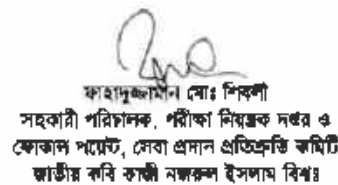 ফাহাদুজ্জামান মোঃ শিবলী
সহকারী পরিচালক, পরীক্ষা নিয়ন্ত্রক দপ্তর ও
ফোকাল পয়েন্ট, সেবা প্রদান প্রতিশ্রুতি কমিটি
জাতীয় কবি কাজী নজরুল ইসলাম বিশ্বঃ